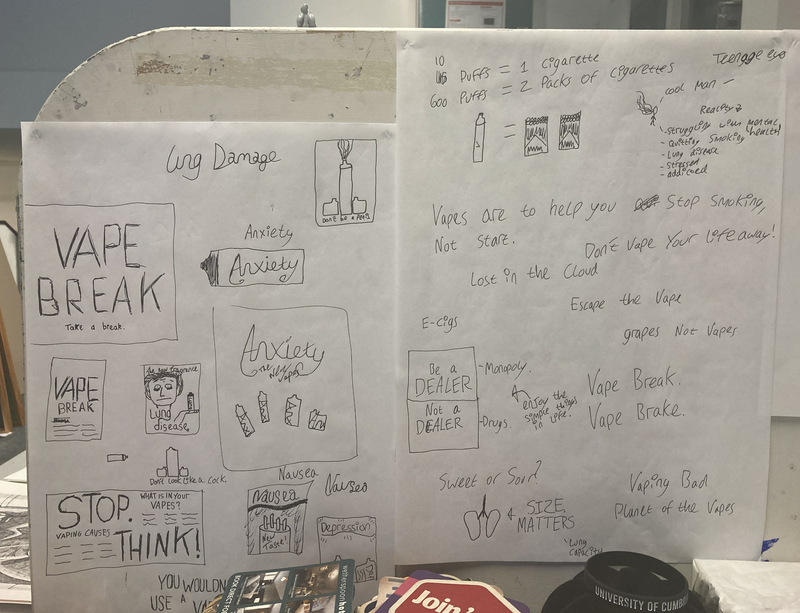 Lung Damage
DON'T BE A PENIS
VAPE
BREAK
Take a break.
Anxiety
Anxiety
Anxiety
The New
Vapes
VAPE
BREAK
The new fragrance
Lung
disease
Don't look like a cock.
STOP.
WHAT IS IN YOUR
VAPES?
VAPING CAUSES
THINK!
Nausea
Nausea
Nausea
New
Taste!
Depression
YOU WOULDN
USE A VA
10
PUFFS = 1 cigarette
600 PUFFS = 2 Packs of cigarettes
Teenage
cool Man -
Reality
- struggling with mental
health!
- Quitting smoking
- Lung disease
- stressed
- addicted
=
Vapes are to help you Stop Smoking,
Not Start.
Don't Vape Your life away!
Lost in the Cloud
Escape the Vape
E-cigs
grapes Not Vapes
Be a
DEALER
- Monopoly.
Not a
DEALER
- Drugs.
enjoy the
simple things
in life.
Vape Break.
Vape Brake.
Sweet or Sour?
SIZE
MATTERS
Lung
capacity
Vaping Bad
Planet of the Vapes
BOOK DIRECT FO
wetherspoon
Join
UNIVERSITY OF CUMB